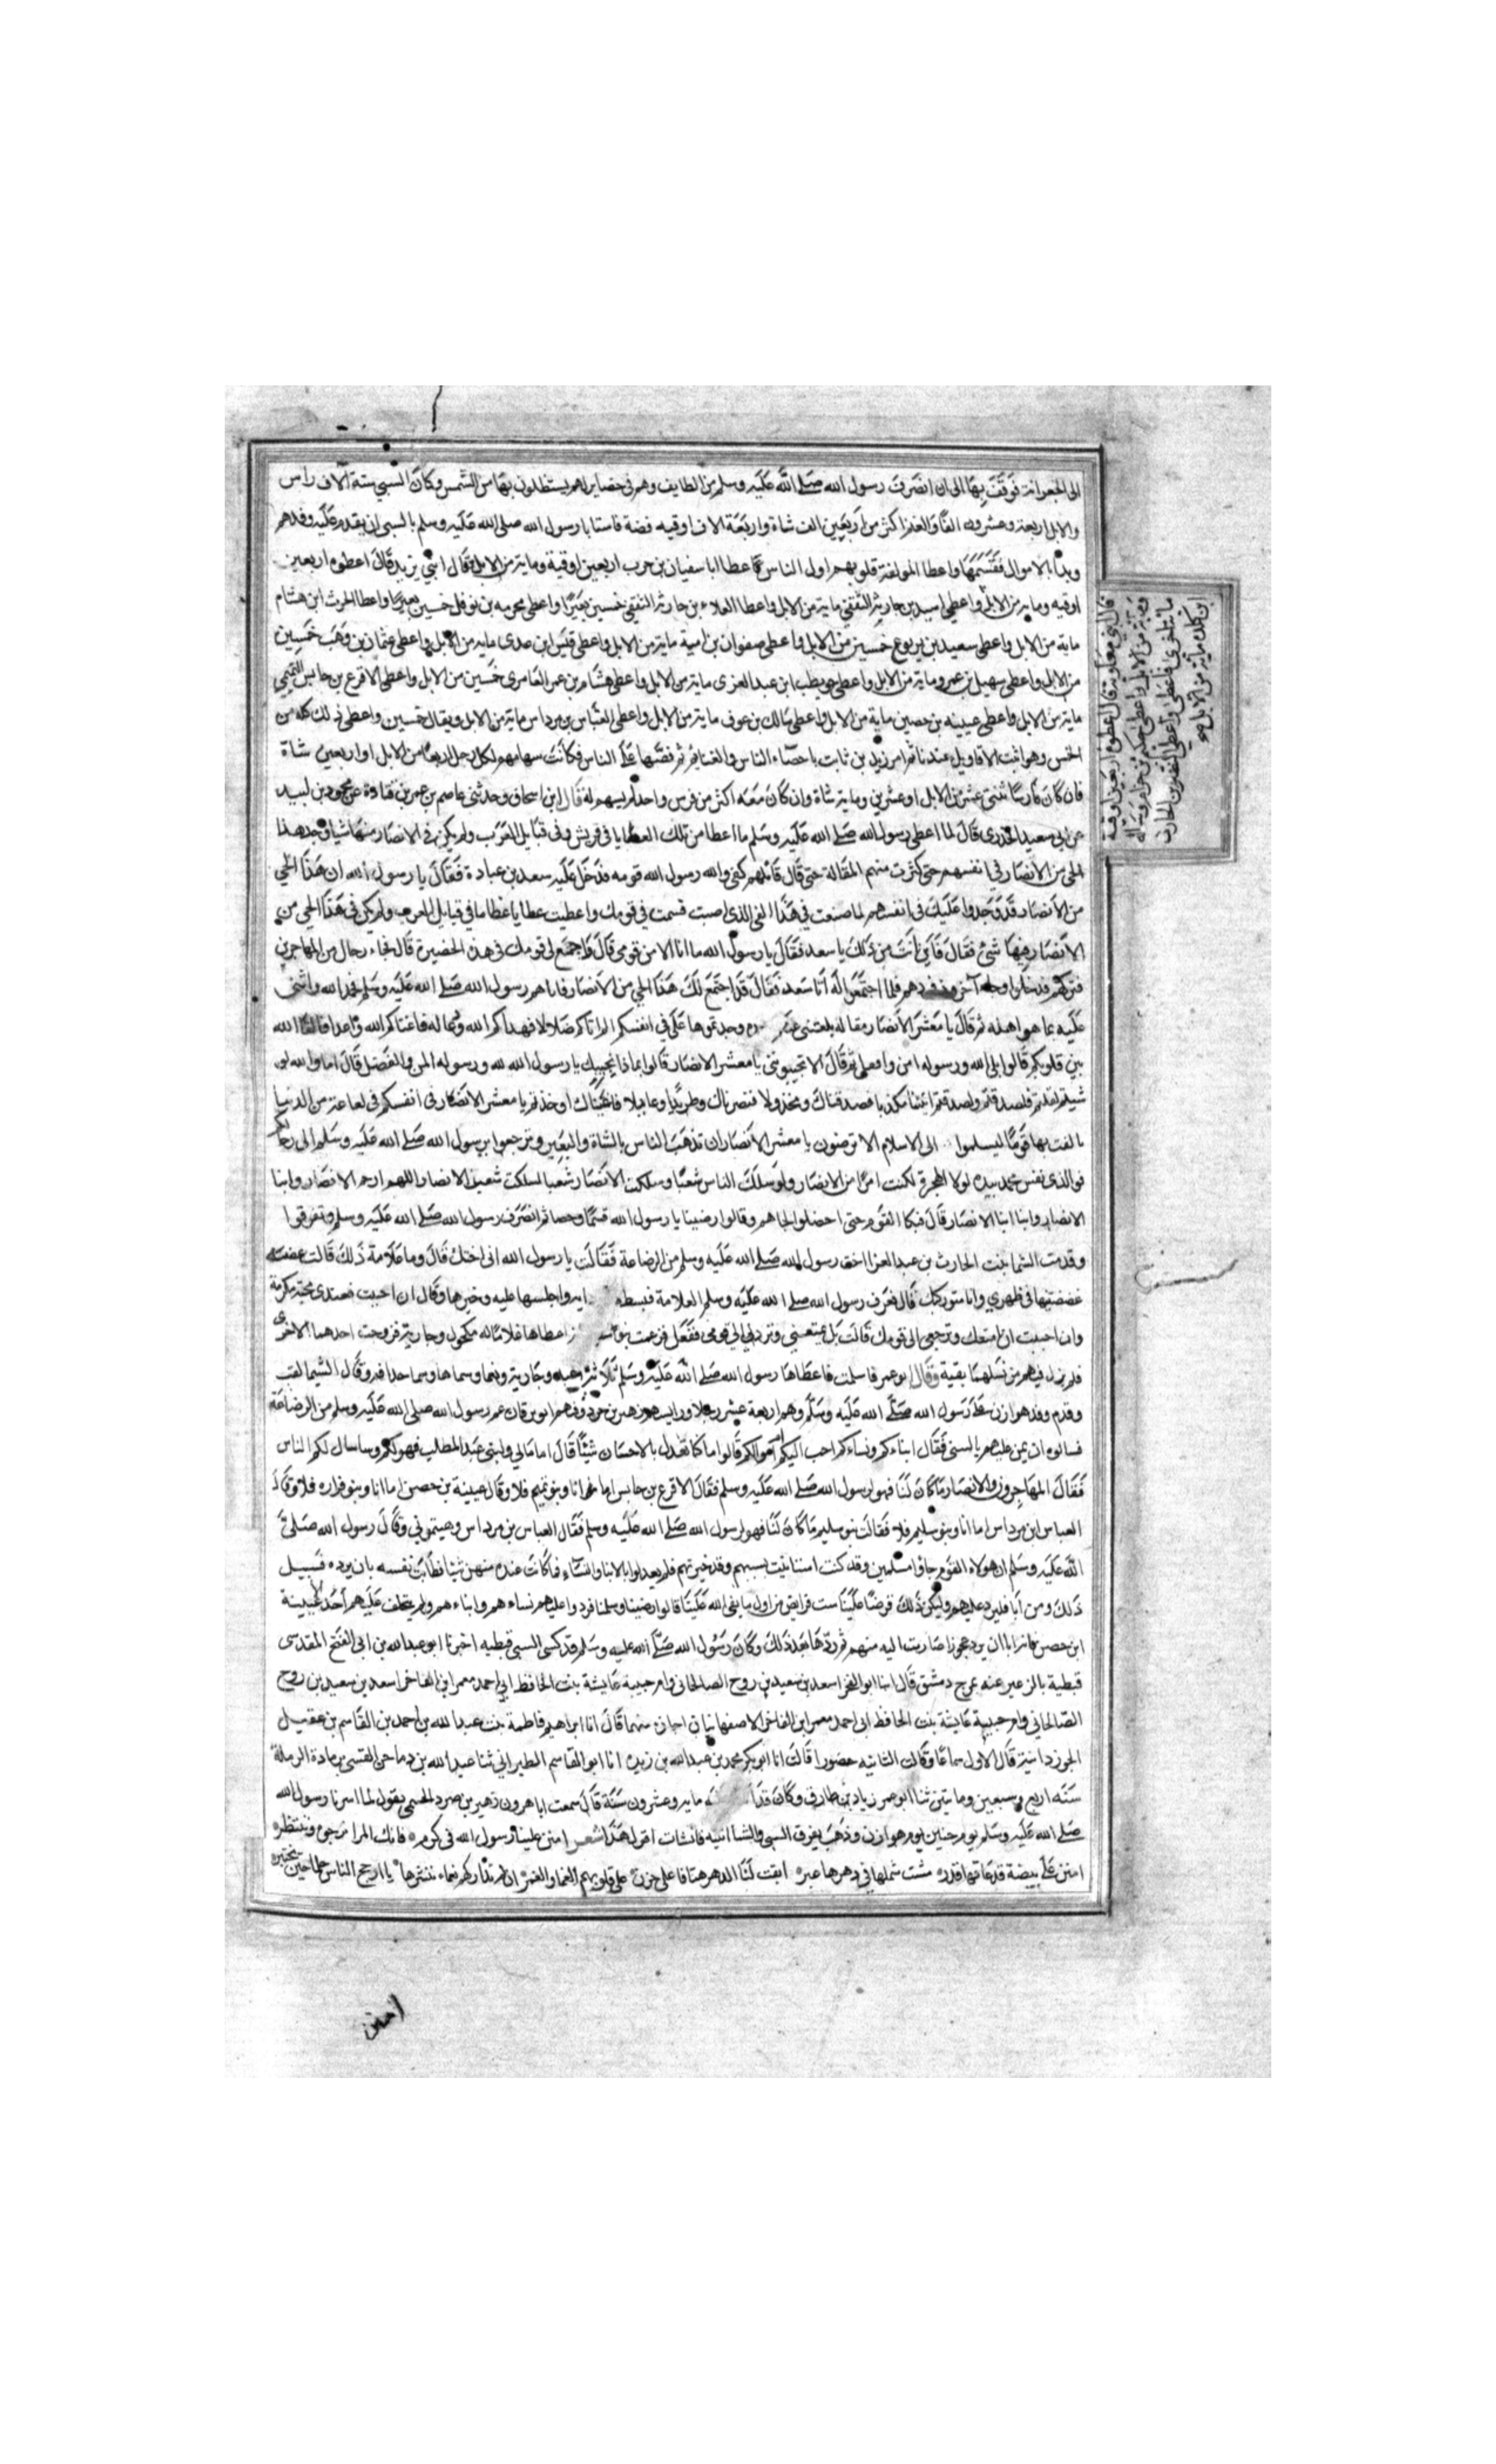 الى الجعرانة فوقفت بها الى ان انصرف رسول الله صلى الله عليه وسلم من الطايف وهم فى حضاير لهم يستظلون بها من الشمس وكان السبي ستة آلاف راس
والابل اربعة وعشرون الفا والغنم اكثر من اربعين الف شاة واربعة الاف اوقيه فضة فاستانا رسول الله صلى الله عليه وسلم بالسبى ان يقدم عليه وفدهم
وبدأ بالاموال فقسمها واعطا المولفة قلوبهم اول الناس فاعطا ابا سفيان بن حرب اربعين اوقية وماية من الابل فقال ابني يزيد قال اعطوه اربعين
اوقيه وماية من الابل واعطى اسيد بن جارية الثقفي ماية من الابل واعطا العلاء بن حارثة الثقفي خمسين بعيرا واعطى مخرمه بن نوفل خمسين بعيرا واعطا الحرث ابن هشام
ماية من الابل واعطى سعيد بن يربوع خمسين من الابل واعطى صفوان بن امية ماية من الابل واعطى قيس ابن عدى ماية من الابل واعطى عثمان بن وهب خمسين
من الابل واعطى سهيل بن عمرو ماية من الابل واعطى حويطب ابن عبد العزى ماية من الابل واعطى هشام بن عمر العامرى خمسين من الابل واعطى الاقرع بن حابس التميمي
ماية من الابل واعطى عيينه بن حصين ماية من الابل واعطى مالك بن عوف ماية من الابل واعطى العباس بن مرداس ماية من الابل ويقال خمسين واعطى ذلك كله من
الخمس وهو اثبت الاقاويل عندنا ثم امر زيد بن ثابت باحصاء الناس والغنايم ثم فضها على الناس فكانت سهامهم لكل رجل اربعا من الابل او اربعين شاة
فان كان فارسا اثنتى عشر من الابل او عشرين وماية شاة وان كان معه اكثر من فرس واحد لم يسهم له قال ابن اسحاق وحدثنى عاصم بن عمر بن قتادة عن محمود بن لبيد
عن ابى سعيد الخدرى قال لما اعطى رسول الله صلى الله عليه وسلم ما اعطا من تلك العطايا فى قريش وفى قبايل العرب ولم يكن فى الانصار منها شيا وجد هذا
الحي من الانصار في انفسهم حتى كثرت منهم المقالة حتى قال قائلهم لقى والله رسول الله قومه فدخل عليه سعد بن عبادة فقال يا رسول الله ان هذا الحي
من الانصار قد وجدوا عليك فى انفسهم لما صنعت في هذا الفى الذى اصبت قسمت فى قومك واعطيت عطايا عظاما في قبايل العرب ولم يكن فى هذا الحي من
الانصار منها شئ فقال فاين انت من ذلك يا سعد فقال يا رسول الله ما انا الا من قومى قال فاجمع لى قومك فى هذه الحضيرة قال فجاء رجال من المهاجرين
فتركهم فدخلوا وجاء آخرون فردهم فلما اجتمعوا له اتا سعد فقال قد اجتمع لك هذا الحي من الانصار فاتاهم رسول الله صلى الله عليه وسلم فحمد الله واثنى
عليه بما هو اهله ثم قال يا معشر الانصار مقاله بلغتنى عنكم وجدتموها على في انفسكم الم اتاكم ضلالا فهداكم الله وعاله فاغناكم الله واعدا فالف الله
بين قلوبكم قالوا بلى الله ورسوله امن وافضل ثم قال الا تجيبوننى يا معشر الانصار قالوا بماذا نجيبك يا رسول الله لله ورسوله المن والفضل قال اما والله لو
شيتم لقلتم فلصدقتم ولصدقتم اتيتنا مكذبا فصدقناك ومخذولا فنصرناك وطريدا وعايلا فاسيناك اوجدتم يا معشر الانصار فى انفسكم فى لعاعة من الدنيا
تالفت بها قوما ليسلموا الى الاسلام الا ترضون يا معشر الانصار ان تذهب الناس بالشاة والبعير وترجعوا برسول الله صلى الله عليه وسلم الى رحالكم
فوالذى نفس محمد بيده لولا الهجرة لكنت امرأ من الانصار ولو سلك الناس شعبا وسلكت الانصار شعبا لسلكت شعب الانصار اللهم ارحم الانصار وابنا
الانصار وابنا ابنا الانصار قال فبكا القوم حتى اخضلوا لحاهم وقالوا رضينا يا رسول الله قسما وحظا ثم انصرف رسول الله صلى الله عليه وسلم وتفرقوا
وقدمت الشما بنت الحارث بن عبد العزا اخت رسول الله صلى الله عليه وسلم من الرضاعة فقالت يا رسول الله انى اختك قال وما علامة ذلك قالت عضة
عضضتنيها فى ظهري وانا متوركتك قال فعرف رسول الله صلى الله عليه وسلم العلامة فبسط واجلسها عليه وخيرها وقال ان احببت فعندى محببة مكرمة
وان احببت ان امتعك وترجعى الى قومك قالت بل تمتعنى وتردنى الى قومى ففعل فزعمت بنو اعطاها غلاما له مكحول وجارية فزوجت احدهما الاخرى
فلم يزل فيهم من نسلهما بقية وقال ابو عمر فاسلمت فاعطاها رسول الله صلى الله عليه وسلم ثلاثة اعبد وجارية ونعما وسماها حذافه وقال الشيما لقب
وقدم وفد هوازن على رسول الله صلى الله عليه وسلم وهم اربعة عشر رجلا ورايسهم زهير بن صرد وفيهم ابو برقان عم رسول الله صلى الله عليه وسلم من الرضاعة
فسالوه ان يمن عليهم بالسبى فقال ابناءكم ونساءكم احب اليكم ام اموالكم قالوا ما كنا نعدل بالاحسان شيئا قال اما مالي ولبنى عبد المطلب فهو لكم وساسال لكم الناس
فقال المهاجرون والانصار ما كان لنا فهو لرسول الله صلى الله عليه وسلم فقال الاقرع بن حابس اما انا وبنو تميم فلا وقال عيينة بن حصن اما انا وبنو فزاره فلا وقال
العباس ابن مرداس اما انا وبنو سليم فلا فقالت بنو سليم ما كان لنا فهو لرسول الله صلى الله عليه وسلم فقال العباس بن مرداس وهنتمونى وقال رسول الله صلى
الله عليه وسلم ان هولاء القوم جاؤا مسلمين وقد كنت استانيت بسبيهم وقد خيرتهم فلم يعدلوا بالابنا والنساء فمن كانت عنده منهن شيئا فطابت نفسه بان يرده فسبيل
ذلك ومن أبا فليرد عليهم وليكن ذلك قرضا علينا ست فرايض من اول ما يفى الله علينا قالوا رضينا وسلمنا فردوا عليهم نساءهم وابناءهم ولم يتخلف عليهم احد غير عيينة
ابن حصن فانه ابا ان يرد عجوزا صارت اليه منهم ثم ردها بعد ذلك وكان رسول الله صلى الله عليه وسلم قد كسى السبي قبطيه اخبرنا ابو عبد الله بن ابى الفتح المقدسى
قبطية بالزعيرعنه بمرج دمشق قال انا ابو الفخر اسعد بن سعيد بن روح الصالحانى وام حبيبة عايشة بنت الحافظ ابي احمد معمر ابن الفاخر اسعد بن سعيد بن روح
الصالحاني وام حبيبة عايشة بنت الحافظ ابى احمد معمر ابن الفاخر الاصفهانيان اجازة منهما قال انا ابراهيم فاطمة بنت عبد الله بن احمد بن القاسم بن عقيل
الجوزدانية قال الاول سماعا وقالت الثانيه حضورا قالت انا ابو بكر محمد بن عبد الله بن زيده انا ابو القاسم الطبراني ثنا عبيد الله بن رماحس القيسى برمادة الرملة
سنه اربع وسبعين ومايتين ثنا ابو عمر زياد بن طارق وكان قد اتت مايه وعشرون سنة قال سمعت ابا هرون زهير بن صرد الجشمى يقول لما اسرنا رسول الله
صلى الله عليه وسلم يوم حنين يوم هوازن وذهب يفرق السبى والشا اتيته فانشات اقول هذا الشعر امنن علينا رسول الله فى كرم فانك المرا نرجوه وننتظره
امنن على بيضة قد عاقها قدره مشت شملها فى دهرها غيره ابقت لنا الدهر هتافا على حزن على قلوبهم الغما والغمر ان لم تداركهم نعماء تنشرها يا ارجح الناس حلما حين يختبره
قال ابني معاوية قال اعطوه اربعين اوقية
وماية من الابل واعطى حكيم بن حزام وساله
مائة اخرى فاعطى واعطى النضر بن الحارث
ابن كلدة مائة من الابل صح
امنن